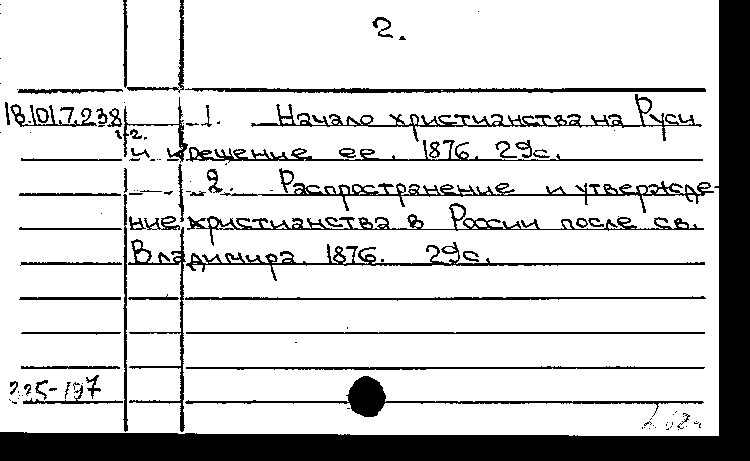 2.
18.101.7.238 1. Начало христианства на Руси
1-2.
и крещение ее. 1876. 29с.
2. Распространение и утвержде-
ние христианства в России после св.
Владимира. 1876. 29с.
335-197